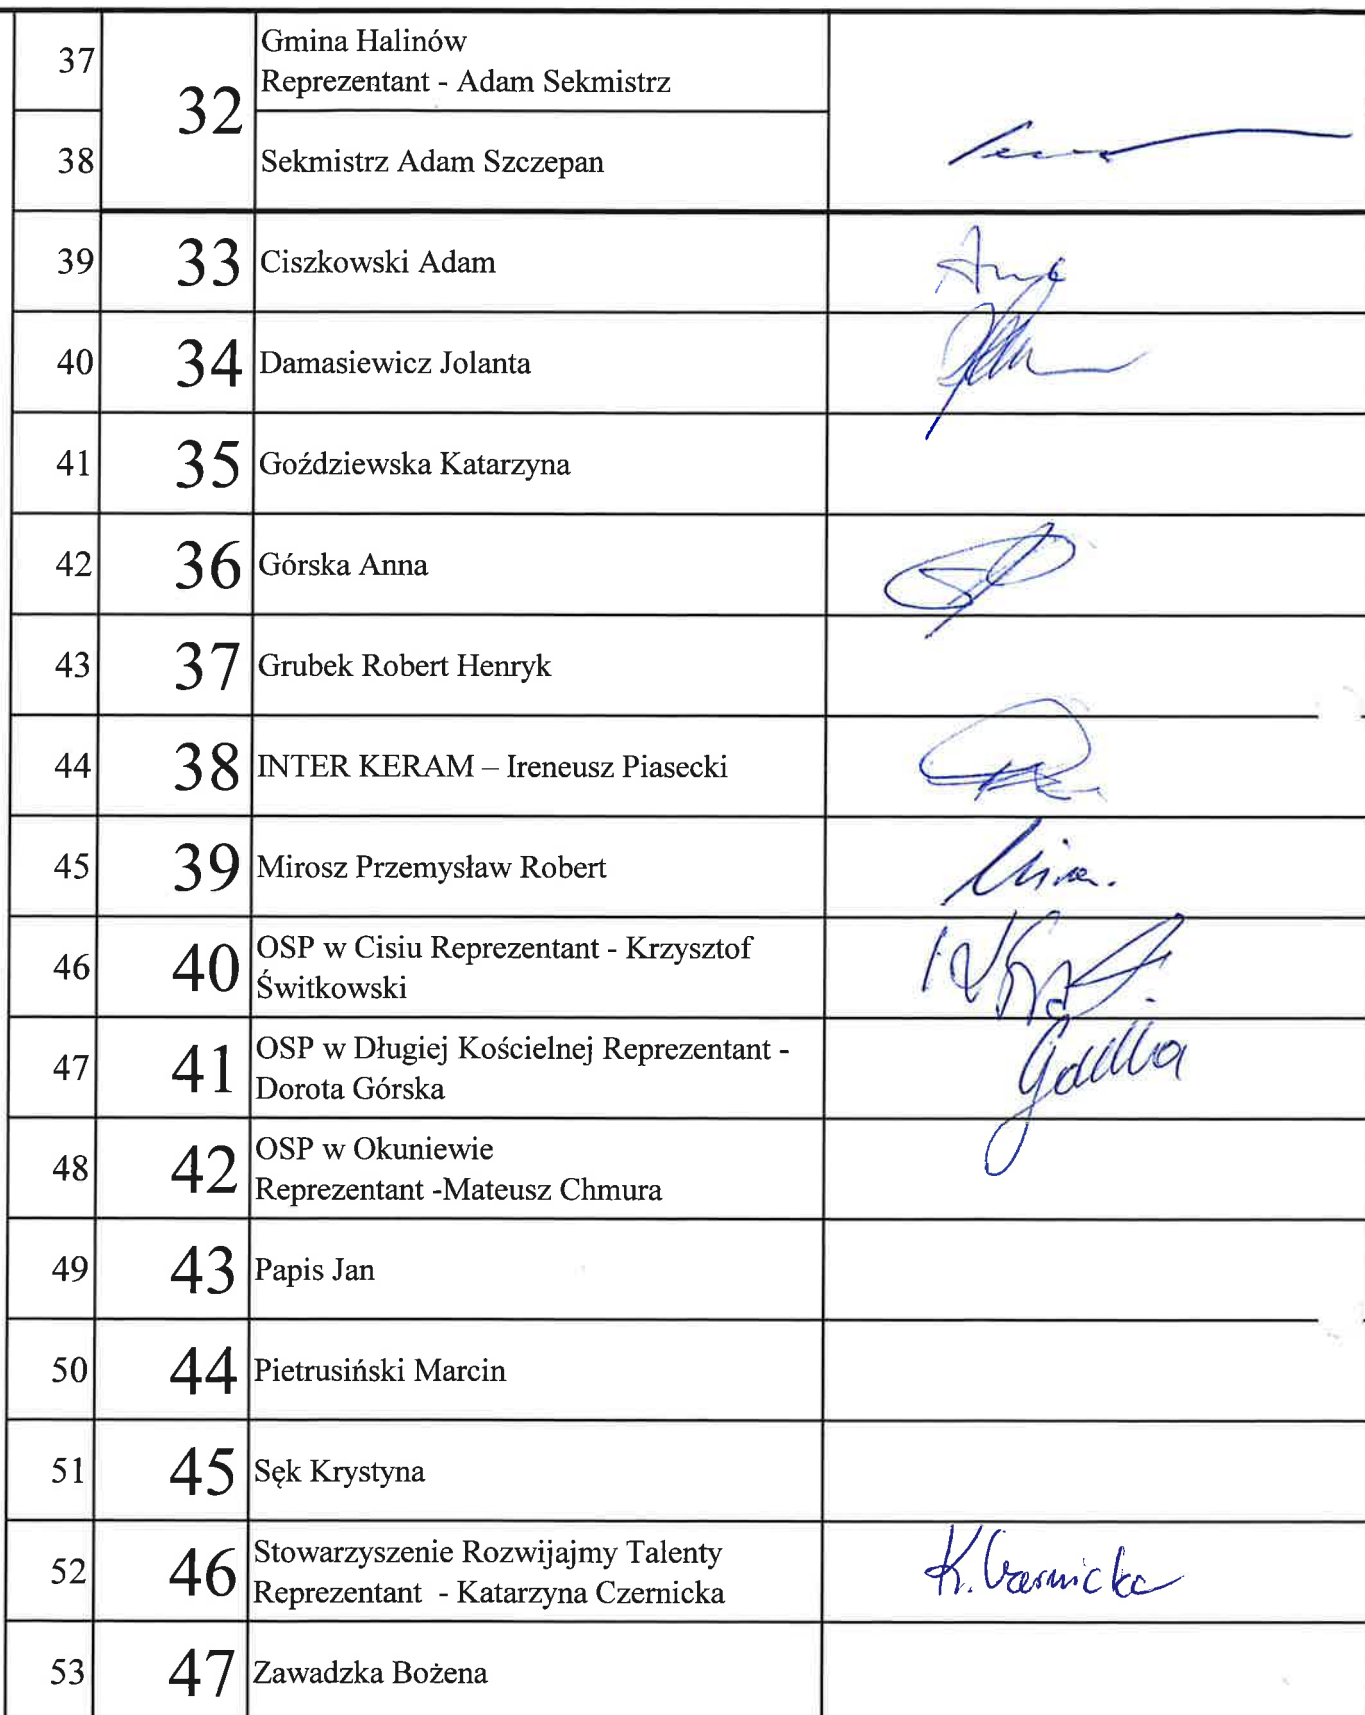 37
32
Gmina Halinów
Reprezentant - Adam Sekmistrz
38
Sekmistrz Adam Szczepan
39 33 Ciszkowski Adam
40 34 Damasiewicz Jolanta
41 35 Goździewska Katarzyna
42 36 Górska Anna
43 37 Grubek Robert Henryk
44 38 INTER KERAM – Ireneusz Piasecki
45 39 Mirosz Przemysław Robert
46 40 OSP w Cisiu Reprezentant - Krzysztof
Świtkowski
47 41 OSP w Długiej Kościelnej Reprezentant -
Dorota Górska
48 42 OSP w Okuniewie
Reprezentant -Mateusz Chmura
49 43 Papis Jan
50 44 Pietrusiński Marcin
51 45 Sęk Krystyna
52 46 Stowarzyszenie Rozwijajmy Talenty
Reprezentant - Katarzyna Czernicka
K. Czernicka
53 47 Zawadzka Bożena